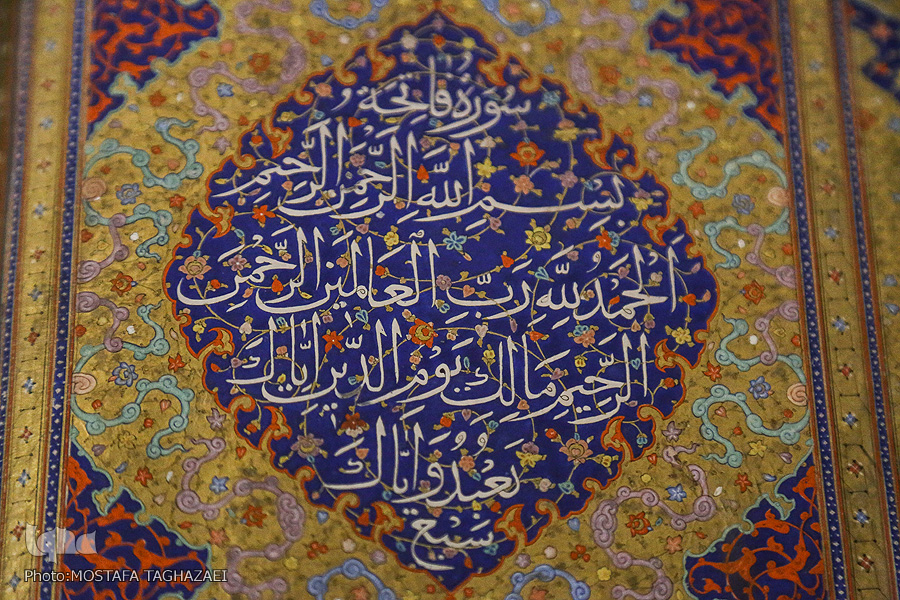 سُورَةُ فَاتِحَة
بِسْمِ اللَّهِ الرَّحْمَنِ الرَّحِيمِ
اَلْحَمْدُ لِلَّهِ رَبِّ الْعَالَمِينَ الرَّحْمَنِ
الرَّحِيمِ مَالِكِ يَوْمِ الدِّينِ اِيَّاكَ
نَعْبُدُ وَ اِيَّاكَ
iqna
Photo:MOSTAFA TAGHAZAEI